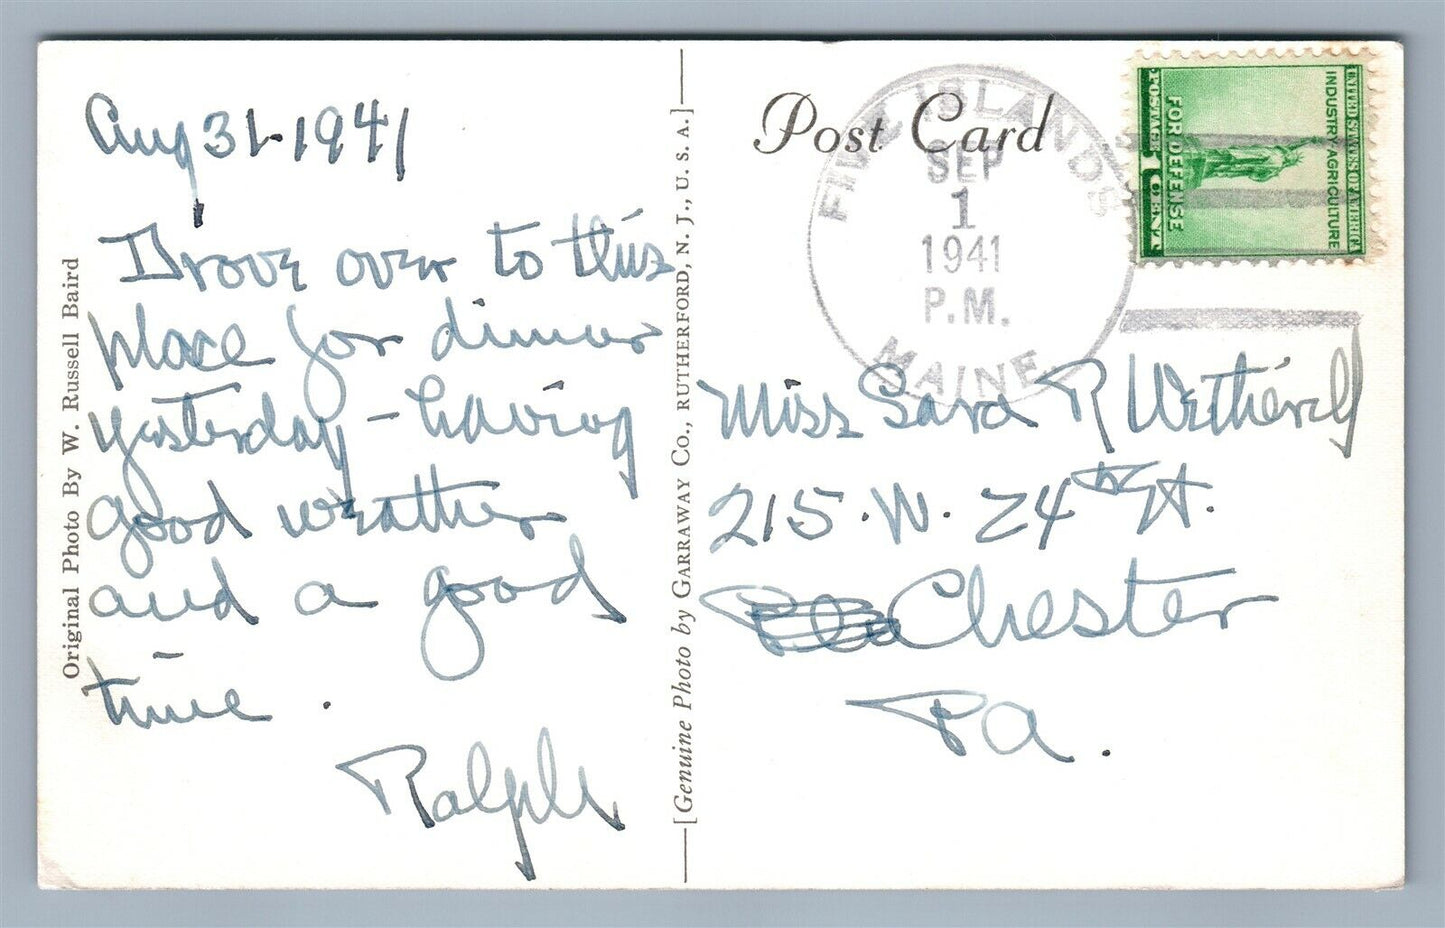 Aug 31-1941
Drove over to this
place for dinner
yesterday - having
good weather
and a good
time.
Ralph
Original Photo By W. Russell Baird
[Genuine Photo by GARRAWAY CO., RUTHERFORD, N. J., U. S. A.]
Post Card
FIVE ISLANDS
SEP
1
1941
P.M.
MAINE
UNITED STATES OF AMERICA
INDUSTRY AGRICULTURE
FOR DEFENSE
POSTAGE 1 CENT
Miss Sara R Wetherill
215. W. 24th St.
Chester
Pa.